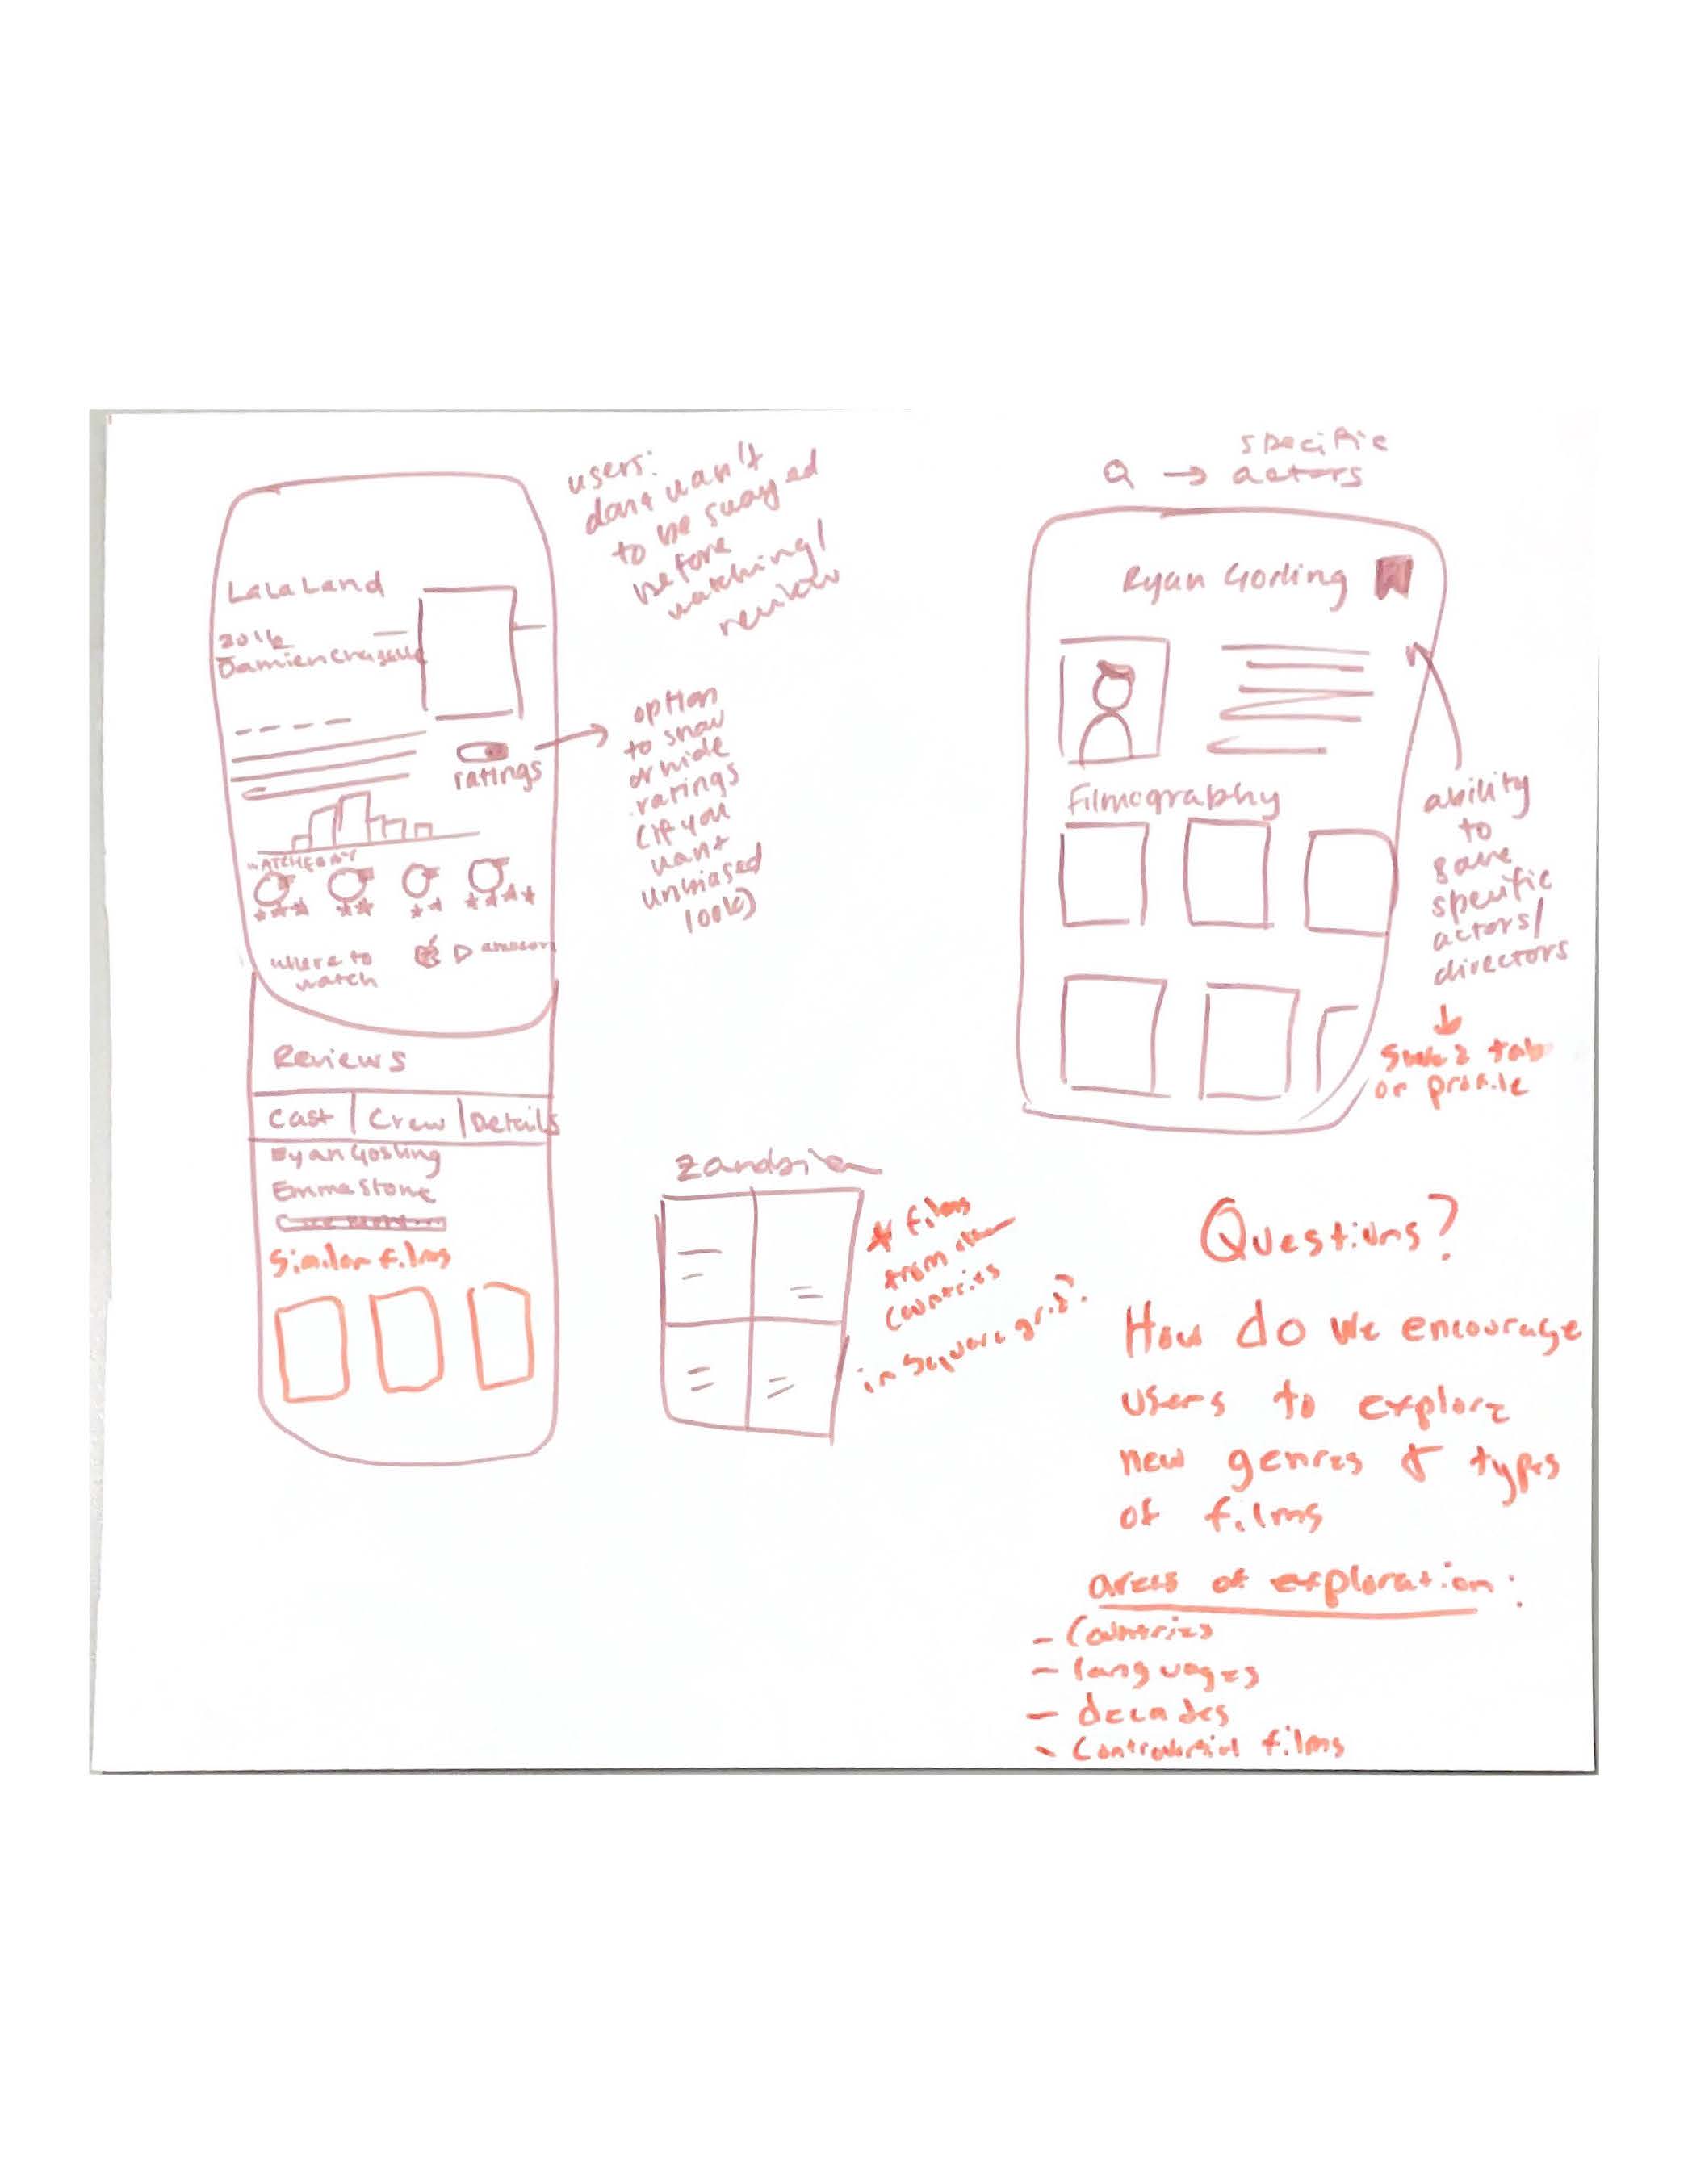 LaLa Land
2016
Damien Chazelle
ratings
WATCHED BY
where to
watch
amazon
Reviews
Cast | Crew | Details
Ryan Gosling
Emma Stone
Similar films
users:
dont want
to be swayed
before
watching/
review
option
to show
or hide
ratings
(if you
want
unbiased
look)
specific
actors
Ryan Gosling
Filmography
ability
to
save
specific
actors/
directors
tab
or profile
* films
from
countries
in square grid?
Questions?
How do we encourage
users to explore
new genres & types
of films
areas of exploration:
- Countries
- languages
- decades
- Controversial films